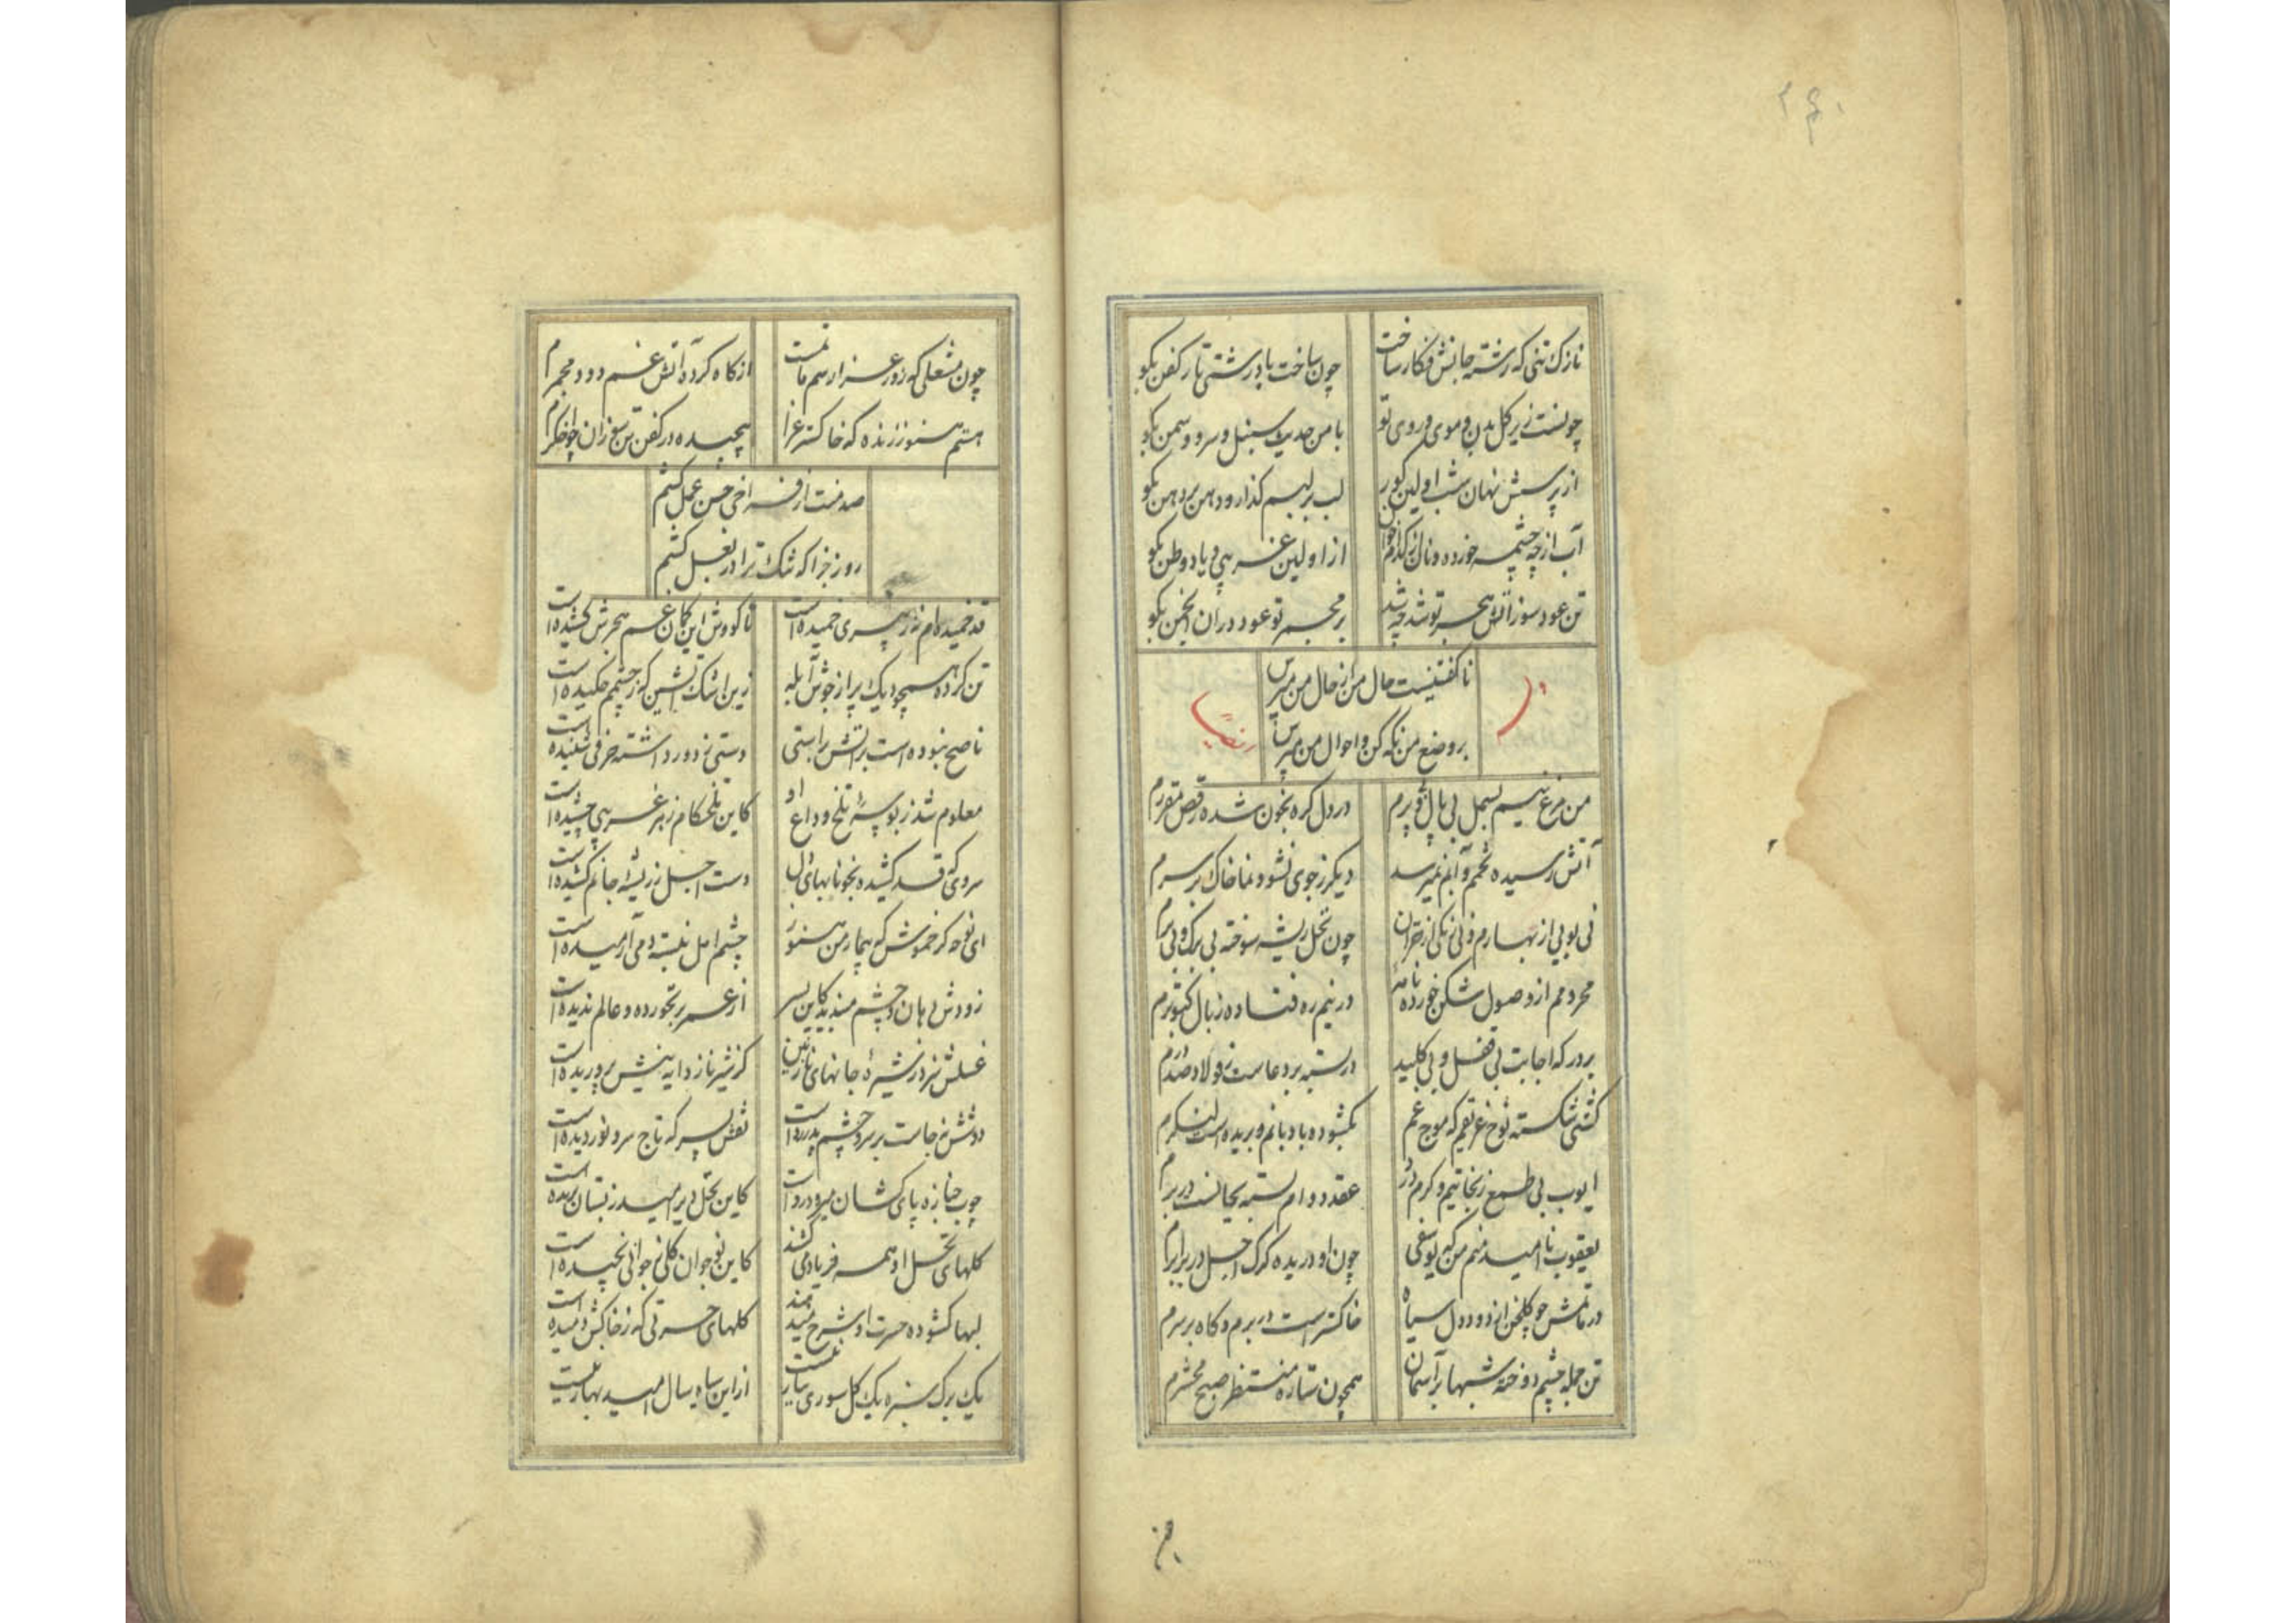 ۲۶۰
نازک تنی که رشته جانش فکار ساخت
چون ساخت با درشتی تار کفن بکو
چونست زیر کل بدن و موی و روی تو
با من حدیث سنبل و سرو و سمن بکو
از پرسش نهان شب اولین کور
لب بر لبم کذار و دهن بر دهن بکو
آب از چه چشمه خورده و نان از کدام خوان
از اولین غریبی و یاد وطن بکو
تن عود سوز آتش هجر تو شد چه شد
بر مجمر تو عود در آن انجمن بکو
ناکفتنیست حال من از حال من مپرس
بر وضع من نکه کن و احوال من مپرس
من مرغ نیم بسمل بی بال و پرم
در دل کره بخون شده رقص مقررم
آتش رسیده تخمم و آبم نمیرسد
دیکر ز جوی نشو و نما خاک بر سرم
نی بویی از بهارم و نی رنکی از خزان
چون نخل ریشه سوخته بی برک و بی برم
محرومم از وصول شکن خورده نامه
در نیم ره فتاده ز بال کبوترم
بر درکه اجابت بی قفل و بی کلید
در بسته بر دعاست ز فولاد صد درم
کشتی شکسته نوح غریقم که موج غم
نکشوده بادبانم و بریده است لنکرم
ایوب بی طمع ز نجاتیم و کرم در
عقد دوام بسته بجانست در برم
یعقوب ناامید منم من که یوسفی
چون او دریده کرک اجل در برابرم
در ماتمش چو کلخن از دود دل سیاه
خاکستر است در برم و کاه بر سرم
تن جمله چشم دوخته شبها بر آسمان
همچون ستاره منتظر صبح محشرم
چون مشعلی که روز عزا رسم ماتمست
از کاه کرده آتش غم دود مجمرم
هستم هنوز زنده که خاکستر عزا
پیچیده در کفن تن سوزان چو اخکرم
صد منت از فراخی حسن عمل کشم
روز جزا که تنک ترا در بغل کشم
قد خمیده‌ام نه ز پیری خمیده است
تا کووش این کمان غم هجرش کشیده است
تن کرده همچو دیک پر از جوش آبله
زین اشک آتشین که ز چشمم چکیده است
ناصح نبوده است بر آتش براستی
دستی ز دور داشته حرفی شنیده است
معلوم شد ز بوسه تلخ وداع او
کاین تلخکام زهر غریبی چشیده است
سروی که قد کشیده بخونابهای دل
دست اجل ز ریشه جانم کشیده است
ای نوحه کر خموش که بیمار من هنوز
چشم امل نبسته دمی آرمیده است
زودش دهان و چشم مبندید کاین پسر
از عمر بر نخورده و عالم ندیده است
غسلش نیز ز شیره جانهای نازنین
کز شیر ناز دایه بنیش پروریده است
دوشش نه جاست بر سر و چشم پدر رواست
نعش پسر که تاج سر و نور دیده است
چوب جنازه پای کشان میرود رواست
کاین نخل دیر امید ز بستان بریده است
کلهای نخل او همه فریاد می کنند
کاین نوجوان کلی ز جوانی نچیده است
لبها کشوده حسرت او شرح میدهند
کلهای حسرتی که ز خاکش دمیده است
یک برک سبزه یک کل سوری بیار نیست
از این سیاه سال امید بهار نیست